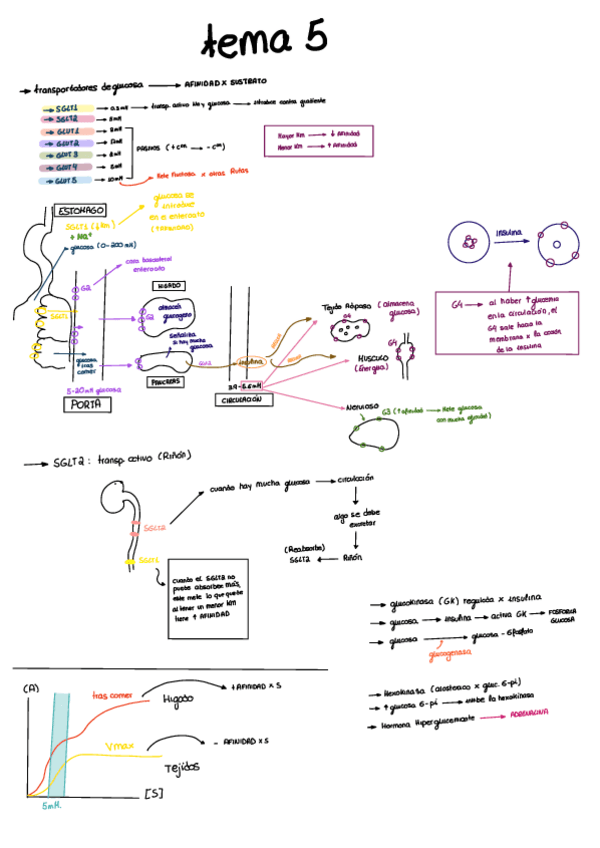 tema 5
→ transportadores de glucosa → AFINIDAD X SUSTRATO
→ SGLT1 → 0.5 mM → transp. activo Na y glucosa → introduce contra gradiente
→ SGLT2 → 5 mM
→ GLUT1 → 3 mM
→ GLUT2
→ GLUT3
→ GLUT4 → 5 mM
→ GLUT5 → 10 mM → Mete fructosa x otras rutas
PASIVOS (+cᵐ → -cᵐ)
Mayor Km → ↓ Afinidad
Menor Km → ↑ Afinidad
ESTOMAGO
SGLT1 (↓Km)
+ Na⁺
glucosa (0-200 mM)
glucosa se
introduce
en el enterocito
G2
cara basolateral
enterocito
SGLT1
glucosa
tras
comer
5-20 mM glucosa
PORTA
HIGADO
almacén
glucogeno
G2
Señaliza
si hay mucha
glucosa
PANCREAS
insulina
3.9-5.6 mM
CIRCULACIÓN
Tejido Adiposo (almacena
glucosa)
G4
MUSCULO
(Energia)
G4
Nervioso
G3 (↑afinidad) → Mete glucosa
con mucha afinidad)
INSULINA
G4 → al haber ↑glucemia
en la circulación, el
G4 sale hacia la
membrana x la acción
de la insulina
→ SGLT2: transp activo (Riñón)
SGLT2
SGLT1
cuando hay mucha glucosa → circulación
algo se debe
excretar
(Reabsorbe)
SGLT2 ← Riñón
cuando el SGLT2 no
puede absorber más,
este mete lo que quede
al tener un menor KM
tiene ↑ AFINIDAD
→ glucokinasa (GK) regulada x insulina
→ glucosa → insulina → activa GK → FOSFORILA
GLUCOSA
→ glucosa → glucosa - 6fosfato
glucogenasa
→ Hexokinasa (alosterico x gluc. 6-pi)
→ ↑ glucosa 6-pi → inhibe la hexokinasa
→ Hormona Hiperglucemiante → ADRENALINA
(A)
tras comer
Higado
+ AFINIDAD X S
Vmax
Tejidos
- AFINIDAD X S
5mM.
[S]